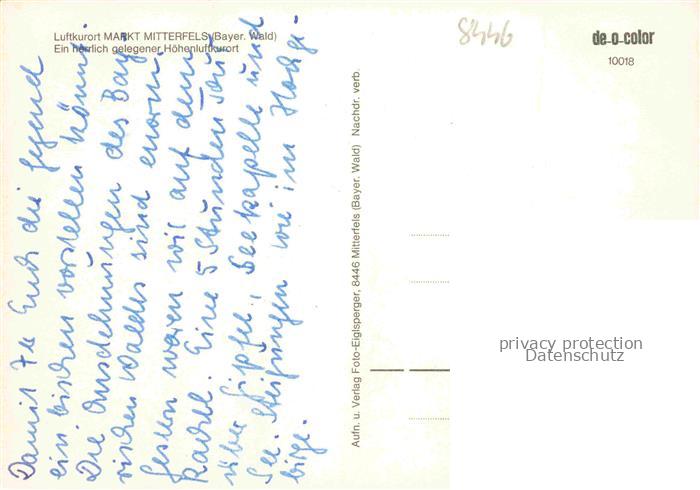 Luftkurort MARKT MITTERFELS (Bayer. Wald)
Ein herrlich gelegener Höhenluftkurort
8446
de-o-color
10018
Damit Ihr Euch die Gegend
ein bischen vorstellen könnt.
Die Ausdehnungen des Bay
rischen Waldes sind enorm.
Gestern waren wir auf dem
Eine 5 Stunden Tour
über Gipfel, Seekapelle und
See. Steigungen wie im Hochge-
birge.
Aufn. u. Verlag Foto-Eiglsperger, 8446 Mitterfels (Bayer. Wald) Nachdr. verb.
privacy protection
Datenschutz